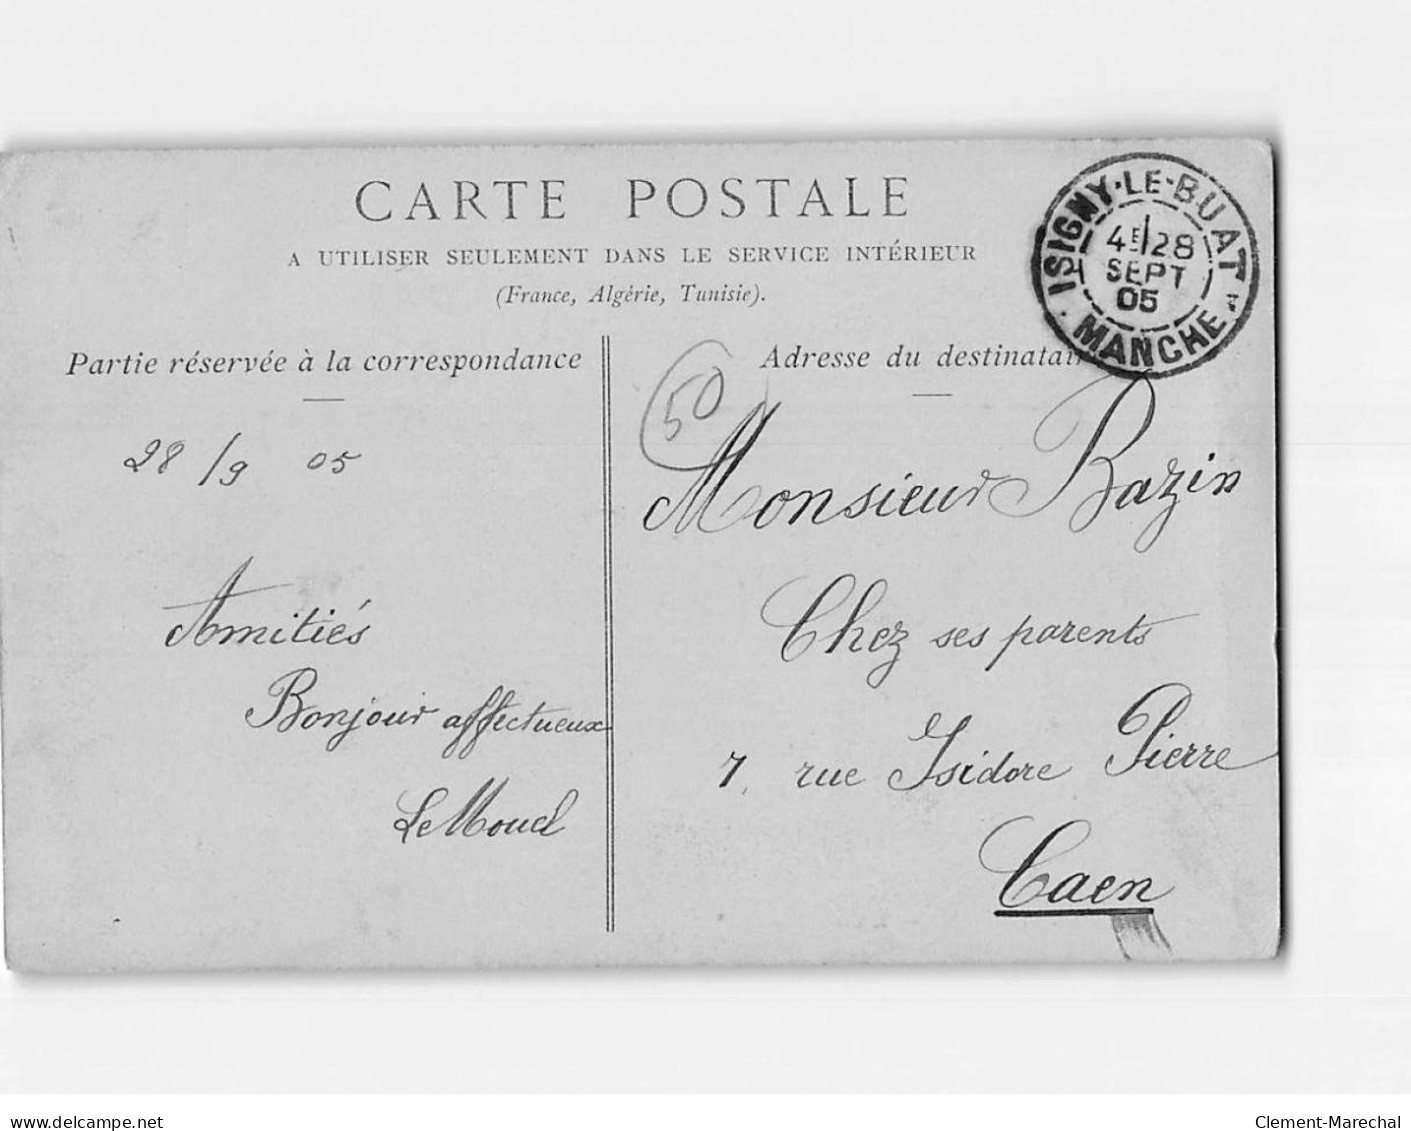 CARTE POSTALE
A UTILISER SEULEMENT DANS LE SERVICE INTÉRIEUR
(France, Algérie, Tunisie).
ISIGNY-LE-BUAT
4E/28
SEPT
05
MANCHE
Partie réservée à la correspondance
28/9 05
Amitiés
Bonjour affectueux
Le Mouel
Adresse du destinatai
50
Monsieur Bazin
Chez ses parents
7, rue Isidore Pierre
Caen
www.delcampe.net
Clement-Marechal